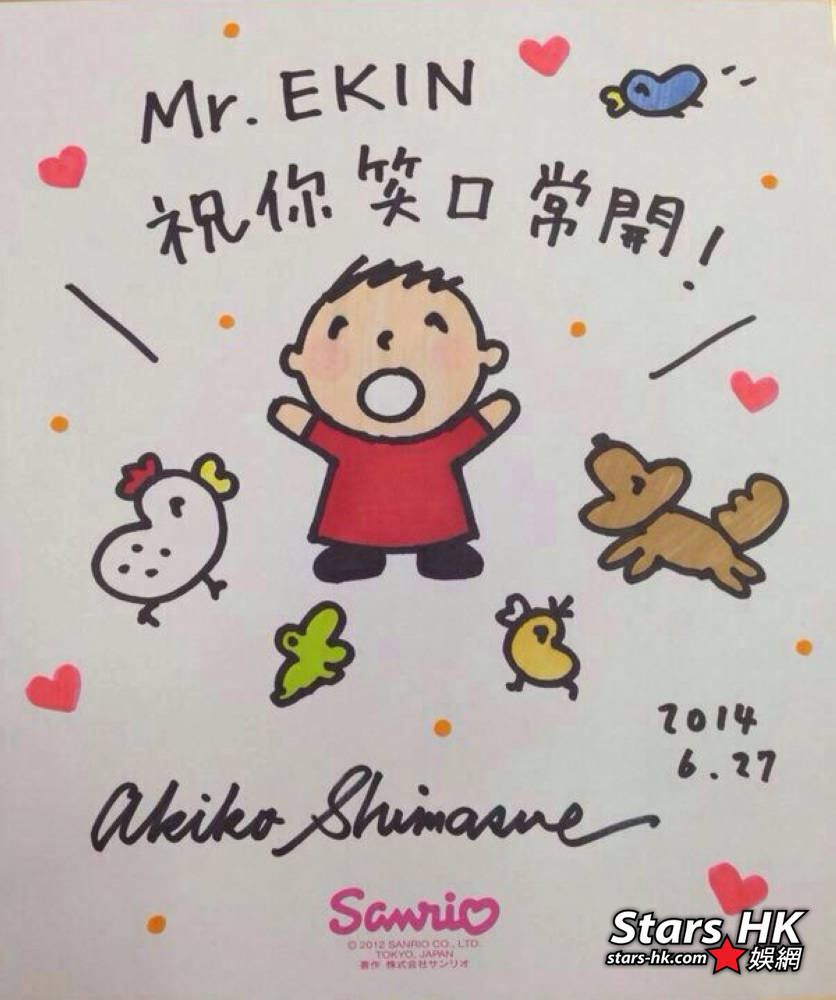 Mr. EKIN
祝你笑口常開!
2014
6.27
Akiko Shimasue
Sanrio
© 2012 SANRIO CO., LTD.
TOKYO, JAPAN
著作 株式会社サンリオ
Stars HK
stars-hk.com 娛網